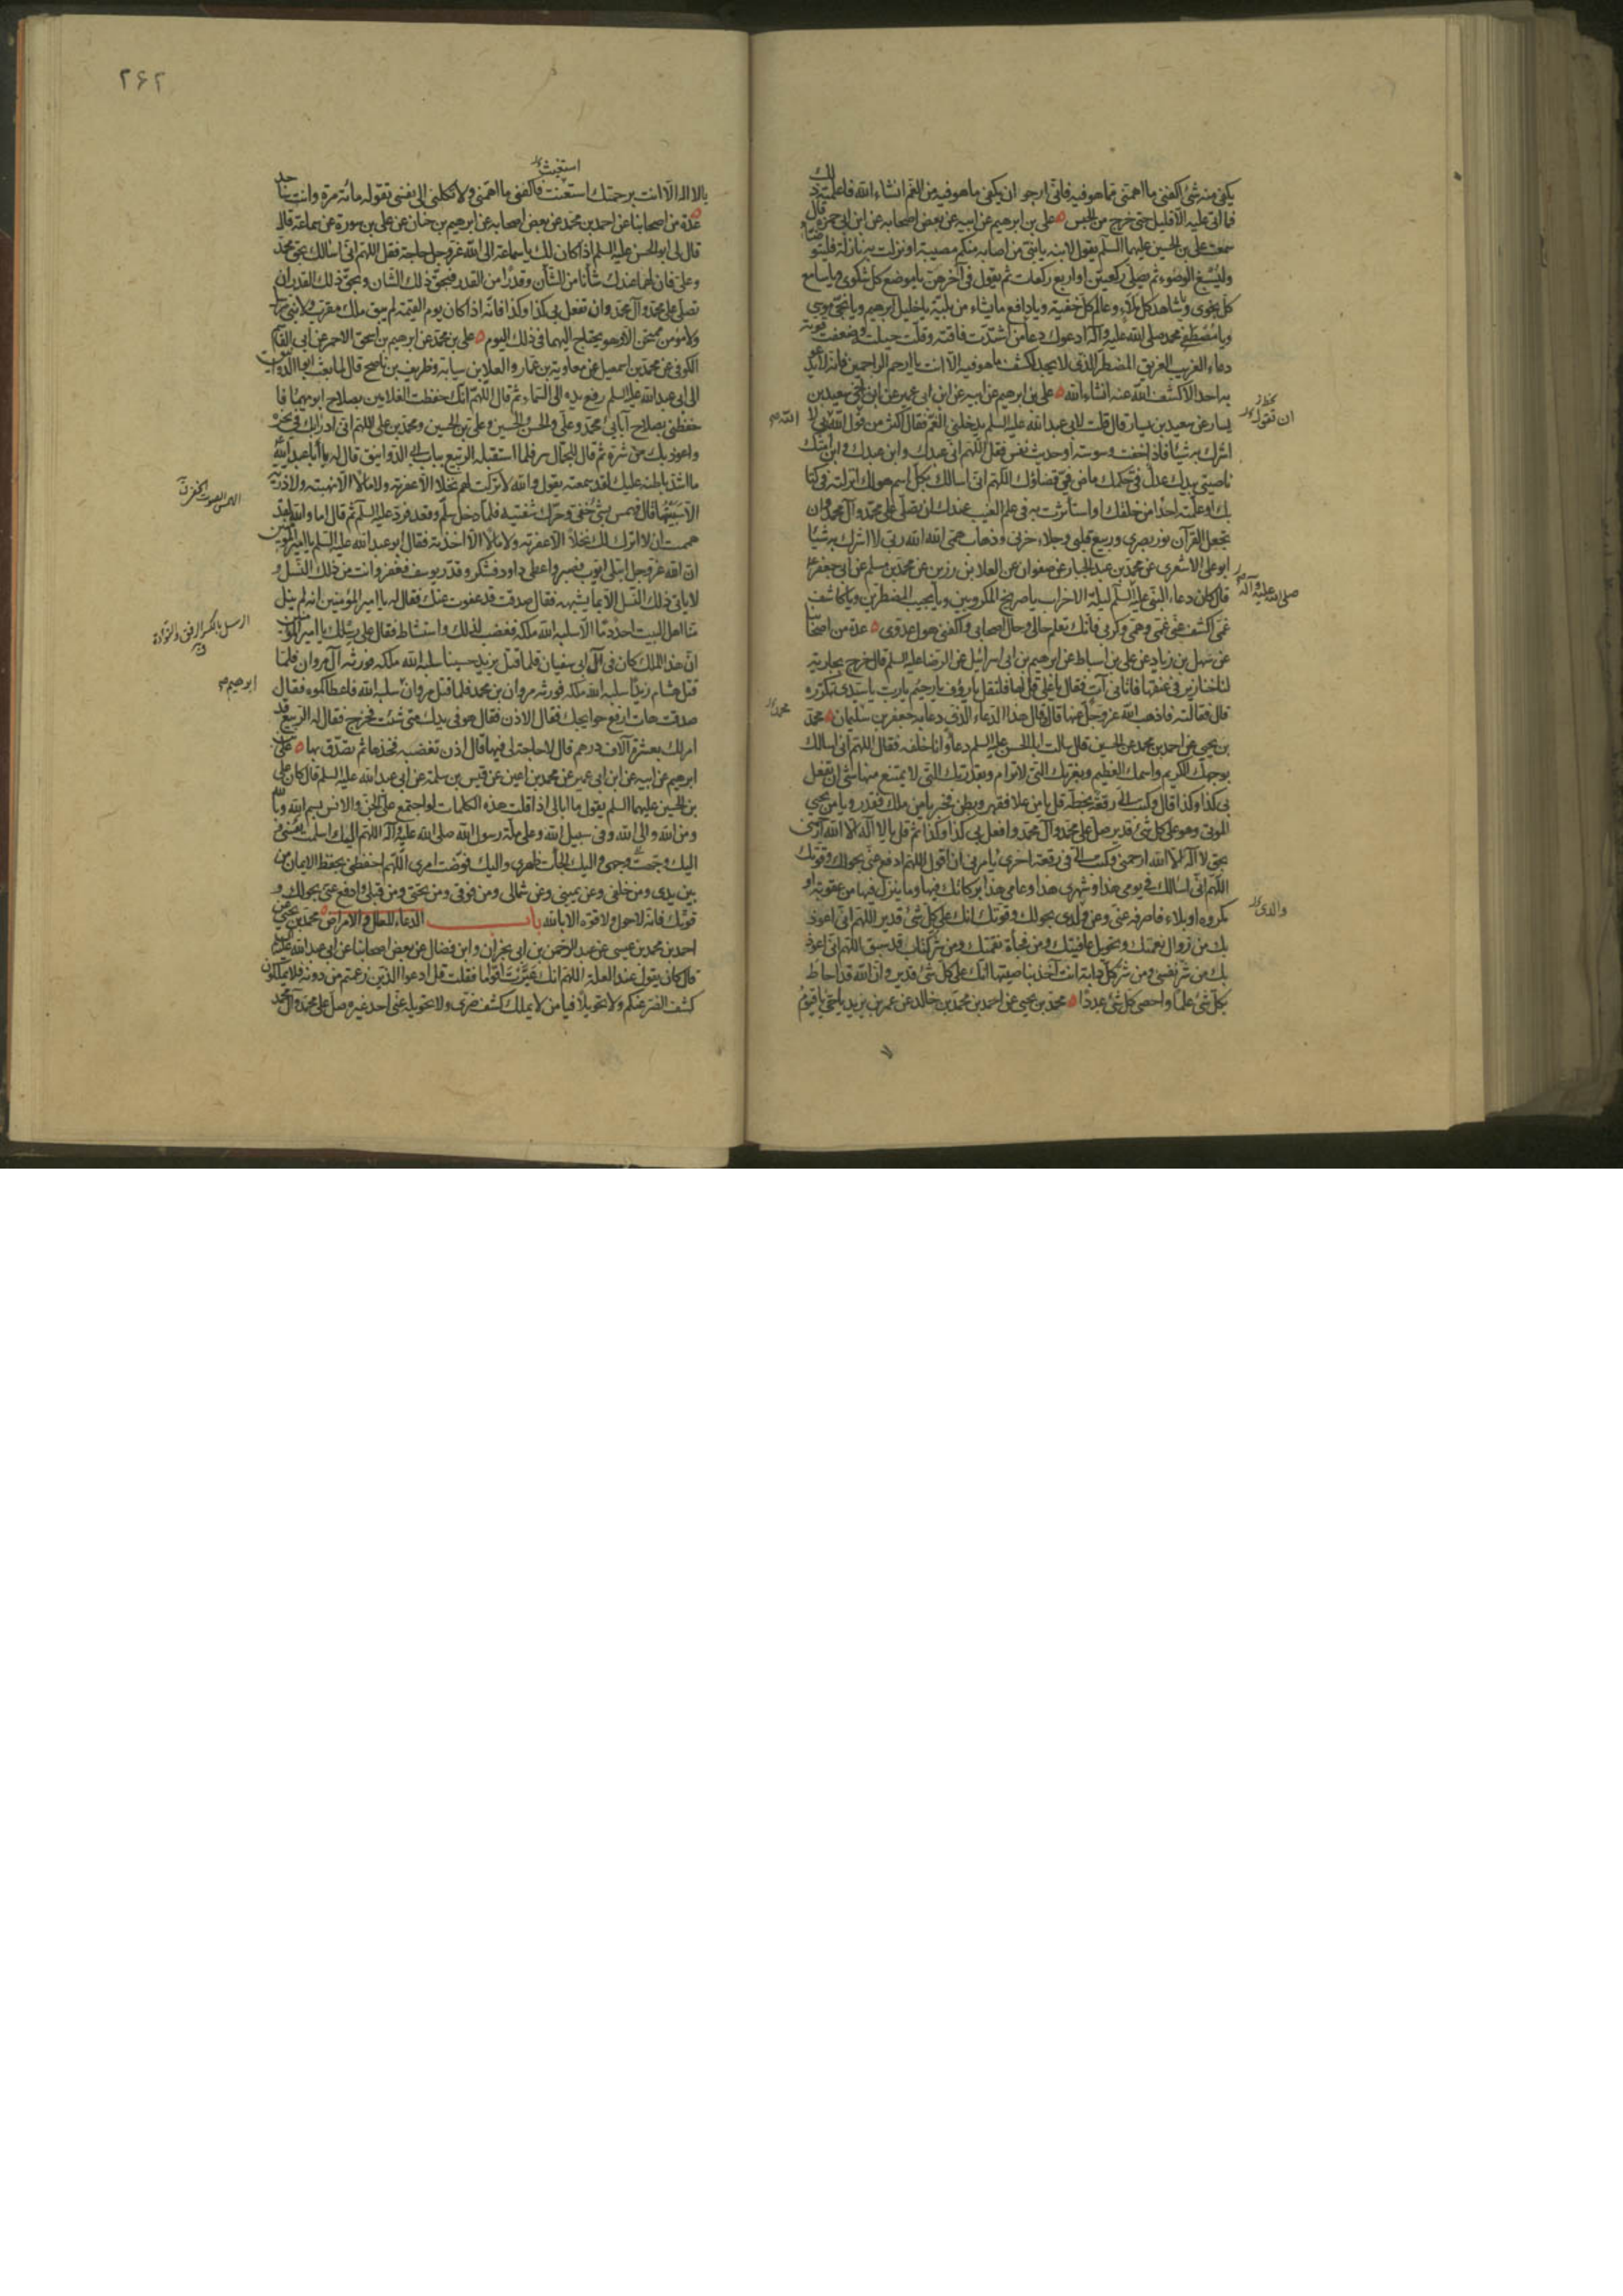 يكفى منه شئ اكفنى ما اهمنى مما هو فيه فانى ارجو ان يكفى ما هو فيه من الغم انشاء الله فاعلمته ذلك
فما اتى عليه الا قليل حتى خرج من الحبس على بن ابرهيم عن ابيه عن بعض اصحابه عن ابن ابى حمزة قال
سمعت على بن الحسين عليهما السلم يقول لابنه يا بنى من اصابه منكم مصيبة او نزلت به نازلة فليتوضأ
وليسبغ الوضوء ثم يصلى ركعتين او اربع ركعات ثم يقول فى آخرهن يا موضع كل شكوى ويا سامع
كل نجوى ويا شاهد كل بلاء وعالم كل خفية ويا دافع ما يشاء من بلية يا خليل ابرهيم ويا نجى موسى
ويا مصطفى محمد صلى الله عليه وآله ادعوك دعاء من اشتدت فاقته وقلت حيلته وضعفت قوته
دعاء الغريب الغريق المضطر الذى لا يجد لكشف ما هو فيه الا انت يا ارحم الراحمين فانه لا يدعو
به احد الا كشف الله عنه انشاء الله على بن ابرهيم عن ابيه عن ابن ابى عمير عن ابن اخى سعيد بن
يسار عن سعيد بن يسار قال قلت لابى عبد الله عليه السلم يدخلنى الغم فقال اكثر من قول الله ربى لا
اشرك به شيئا فاذا خفت وسوسة او حديث نفس فقل اللهم انى عبدك وابن عبدك وابن امتك
ناصيتى بيدك عدل فى حكمك ماض فى قضاؤك اللهم انى اسالك بكل اسم هو لك انزلته فى كتا
بك او علمته احدا من خلقك او استأثرت به فى علم الغيب عندك ان تصلى على محمد وآل محمد وان
تجعل القرآن نور بصرى وربيع قلبى وجلاء حزنى وذهاب همى الله الله ربى لا اشرك به شيئا
ابو على الاشعرى عن محمد بن عبد الجبار عن صفوان عن العلا بن رزين عن محمد بن مسلم عن ابى جعفر
قال كان دعاء النبى عليه السلم ليلة الاحزاب يا صريخ المكروبين ويا مجيب المضطرين ويا كاشف
غمى اكشف عنى غمى وهمى وكربى فانك تعلم حالى وحال اصحابى واكفنى هول عدوى عدة من اصحابنا
عن سهل بن زياد عن على بن اسباط عن ابرهيم بن ابى اسرائيل عن الرضا عليه السلم قال خرج بجارية
لنا خنازير فى عنقها فاتانى آت فقال يا على قل لها فلتقل يا رؤف يا رحيم يا رب يا سيدى تكرره
قال فقالته فاذهب الله عز وجل عنها قال وقال هذا الدعاء الذى دعا به جعفر بن سليمان محمد
بن يحيى عن احمد بن محمد عن الحسين قال سالت ابا الحسن عليه السلم دعاء وانا خلفه فقال اللهم انى اسالك
بوجهك الكريم واسمك العظيم وبعزتك التى لا ترام وبقدرتك التى لا يمتنع منها شئ ان تفعل
بى كذا وكذا قال وكتب الى رقعة بخطه قل يا من علا فقهر وبطن فخبر يا من ملك فقدر ويا من يحيى
الموتى وهو على كل شئ قدير صل على محمد وآل محمد وافعل بى كذا وكذا ثم قل يا لا اله الا الله ارحمنى
بحق لا اله الا الله ارحمنى وكتب الى فى رقعة اخرى يأمرنى ان اقول اللهم ادفع عنى بحولك وقوتك
اللهم انى اسالك فى يومى هذا وشهرى هذا وعامى هذا بركاتك فيها وما ينزل فيها من عقوبة او
مكروه او بلاء فاصرفه عنى وعن ولدى بحولك وقوتك انك على كل شئ قدير اللهم انى اعوذ
بك من زوال نعمتك وتحويل عافيتك ومن فجأة نقمتك ومن شر كتاب قد سبق اللهم انى اعوذ
بك من شر نفسى ومن شر كل دابة انت آخذ بناصيتها انك على كل شئ قدير وان الله قد احاط
بكل شئ علما واحصى كل شئ عددا محمد بن يحيى عن احمد بن محمد بن خالد عن عمر بن يزيد يا حى يا قيوم
ان تقول
اللهم
صلى الله عليه وآله
محمد
والدى
٢٦٢
استغيث
يا لا اله الا انت برحمتك استعنت فاكفنى ما اهمنى ولا تكلنى الى نفسى تقوله مائة مرة وانت ساجد
عدة من اصحابنا عن احمد بن محمد عن بعض اصحابه عن ابرهيم بن حنان عن على بن سورة عن سماعة قال
قال لى ابو الحسن عليه السلم اذا كان لك يا سماعة الى الله عز وجل حاجة فقل اللهم انى اسالك بحق محمد
وعلى فان لهما عندك شأنا من الشأن وقدرا من القدر فبحق ذلك الشأن وبحق ذلك القدر ان
تصلى على محمد وآل محمد وان تفعل بى كذا وكذا فانه اذا كان يوم القيمة لم يبق ملك مقرب ولا نبى مرسل
ولا مؤمن ممتحن الا وهو يحتاج اليهما فى ذلك اليوم على بن محمد عن ابرهيم بن اسحق الاحمر عن ابى القاسم
الكوفى عن محمد بن اسمعيل عن معاوية بن عمار والعلا بن سيابة وظريف بن ناصح قال لما بعث ابو الدوانيق
الى ابى عبد الله عليه السلم رفع يده الى السماء ثم قال اللهم انك حفظت الغلامين بصلاح ابويهما فا
حفظنى بصلاح آبائى محمد وعلى والحسن والحسين وعلى بن الحسين ومحمد بن على اللهم انى ادرأ بك فى نحره
واعوذ بك من شره ثم قال للجمال سر فلما استقبله الربيع بباب ابى الدوانيق قال له يا ابا عبد الله
ما اشد باطنه عليك لقد سمعته يقول والله لا تركت لهم نخلا الا عقرته ولا مالا الا نهبته ولا ذرية
الا سبيتها قال فهمس بشئ خفى وحرك شفتيه فلما دخل سلم وقعد فرد عليه السلم ثم قال اما والله لقد
هممت ان لا اترك لك نخلا الا عقرته ولا مالا الا اخذته فقال ابو عبد الله عليه السلم يا امير المؤمنين
ان الله عز وجل ابتلى ايوب فصبر واعطى داود فشكر وقدر يوسف فغفر وانت من ذلك النسل و
لا ياتى ذلك النسل الا بما يشبهه فقال صدقت قد عفوت عنك فقال له يا امير المؤمنين انه لم ينل
منا اهل البيت احد دما الا سلبه الله ملكه فغضب لذلك واستشاط فقال على رسلك يا امير المؤمنين
ان هذا الملك كان فى آل ابى سفيان فلما قتل يزيد حسينا سلبه الله ملكه فورثه آل مروان فلما
قتل هشام زيدا سلبه الله ملكه فورثه مروان بن محمد فلما قتل مروان سلبه الله فاعطاكموه فقال
صدقت هات ارفع حوايجك فقال الاذن فقال هو فى يدك متى شئت فخرج فقال له الربيع قد
امر لك بعشرة آلاف درهم قال لا حاجة لى فيها قال اذن تغضبه فخذها ثم تصدق بها على بن
ابرهيم عن ابيه عن ابن ابى عمير عن محمد بن اعين عن قيس بن سلمة عن ابى عبد الله عليه السلم قال كان على
بن الحسين عليهما السلم يقول ما ابالى اذا قلت هذه الكلمات لو اجتمع على الجن والانس بسم الله وبالله
ومن الله والى الله وفى سبيل الله وعلى ملة رسول الله صلى الله عليه وآله اللهم اليك اسلمت نفسى و
اليك وجهت وجهى واليك الجأت ظهرى واليك فوضت امرى اللهم احفظنى بحفظ الايمان من
بين يدى ومن خلفى وعن يمينى وعن شمالى ومن فوقى ومن تحتى ومن قبلى وادفع عنى بحولك و
قوتك فانه لا حول ولا قوة الا بالله باب الدعاء للعلل والامراض محمد بن يحيى عن
احمد بن محمد بن عيسى عن عبد الرحمن بن ابى نجران وابن فضال عن بعض اصحابنا عن ابى عبد الله عليه السلم
قال كان يقول عند العلة اللهم انك عيرت اقواما فقلت قل ادعوا الذين زعمتم من دونه فلا يملكون
كشف الضر عنكم ولا تحويلا فيا من لا يملك كشف ضرى ولا تحويله عنى احد غيره صل على محمد وآل محمد
الهمس الصوت الخفى
الرسل بالكسر الرفق والتؤدة
ابرهيم